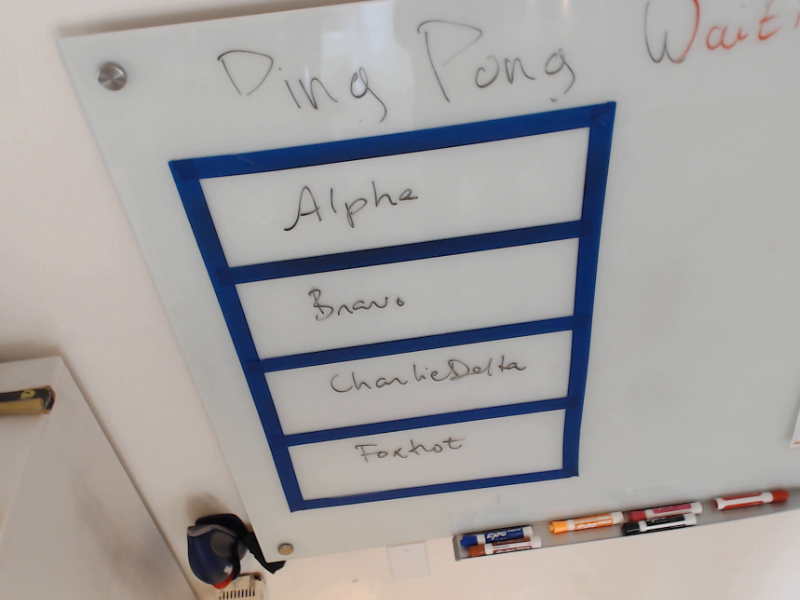 Ding Pong
Alpha
Bravo
CharlieDelta
Foxhot
EXPO